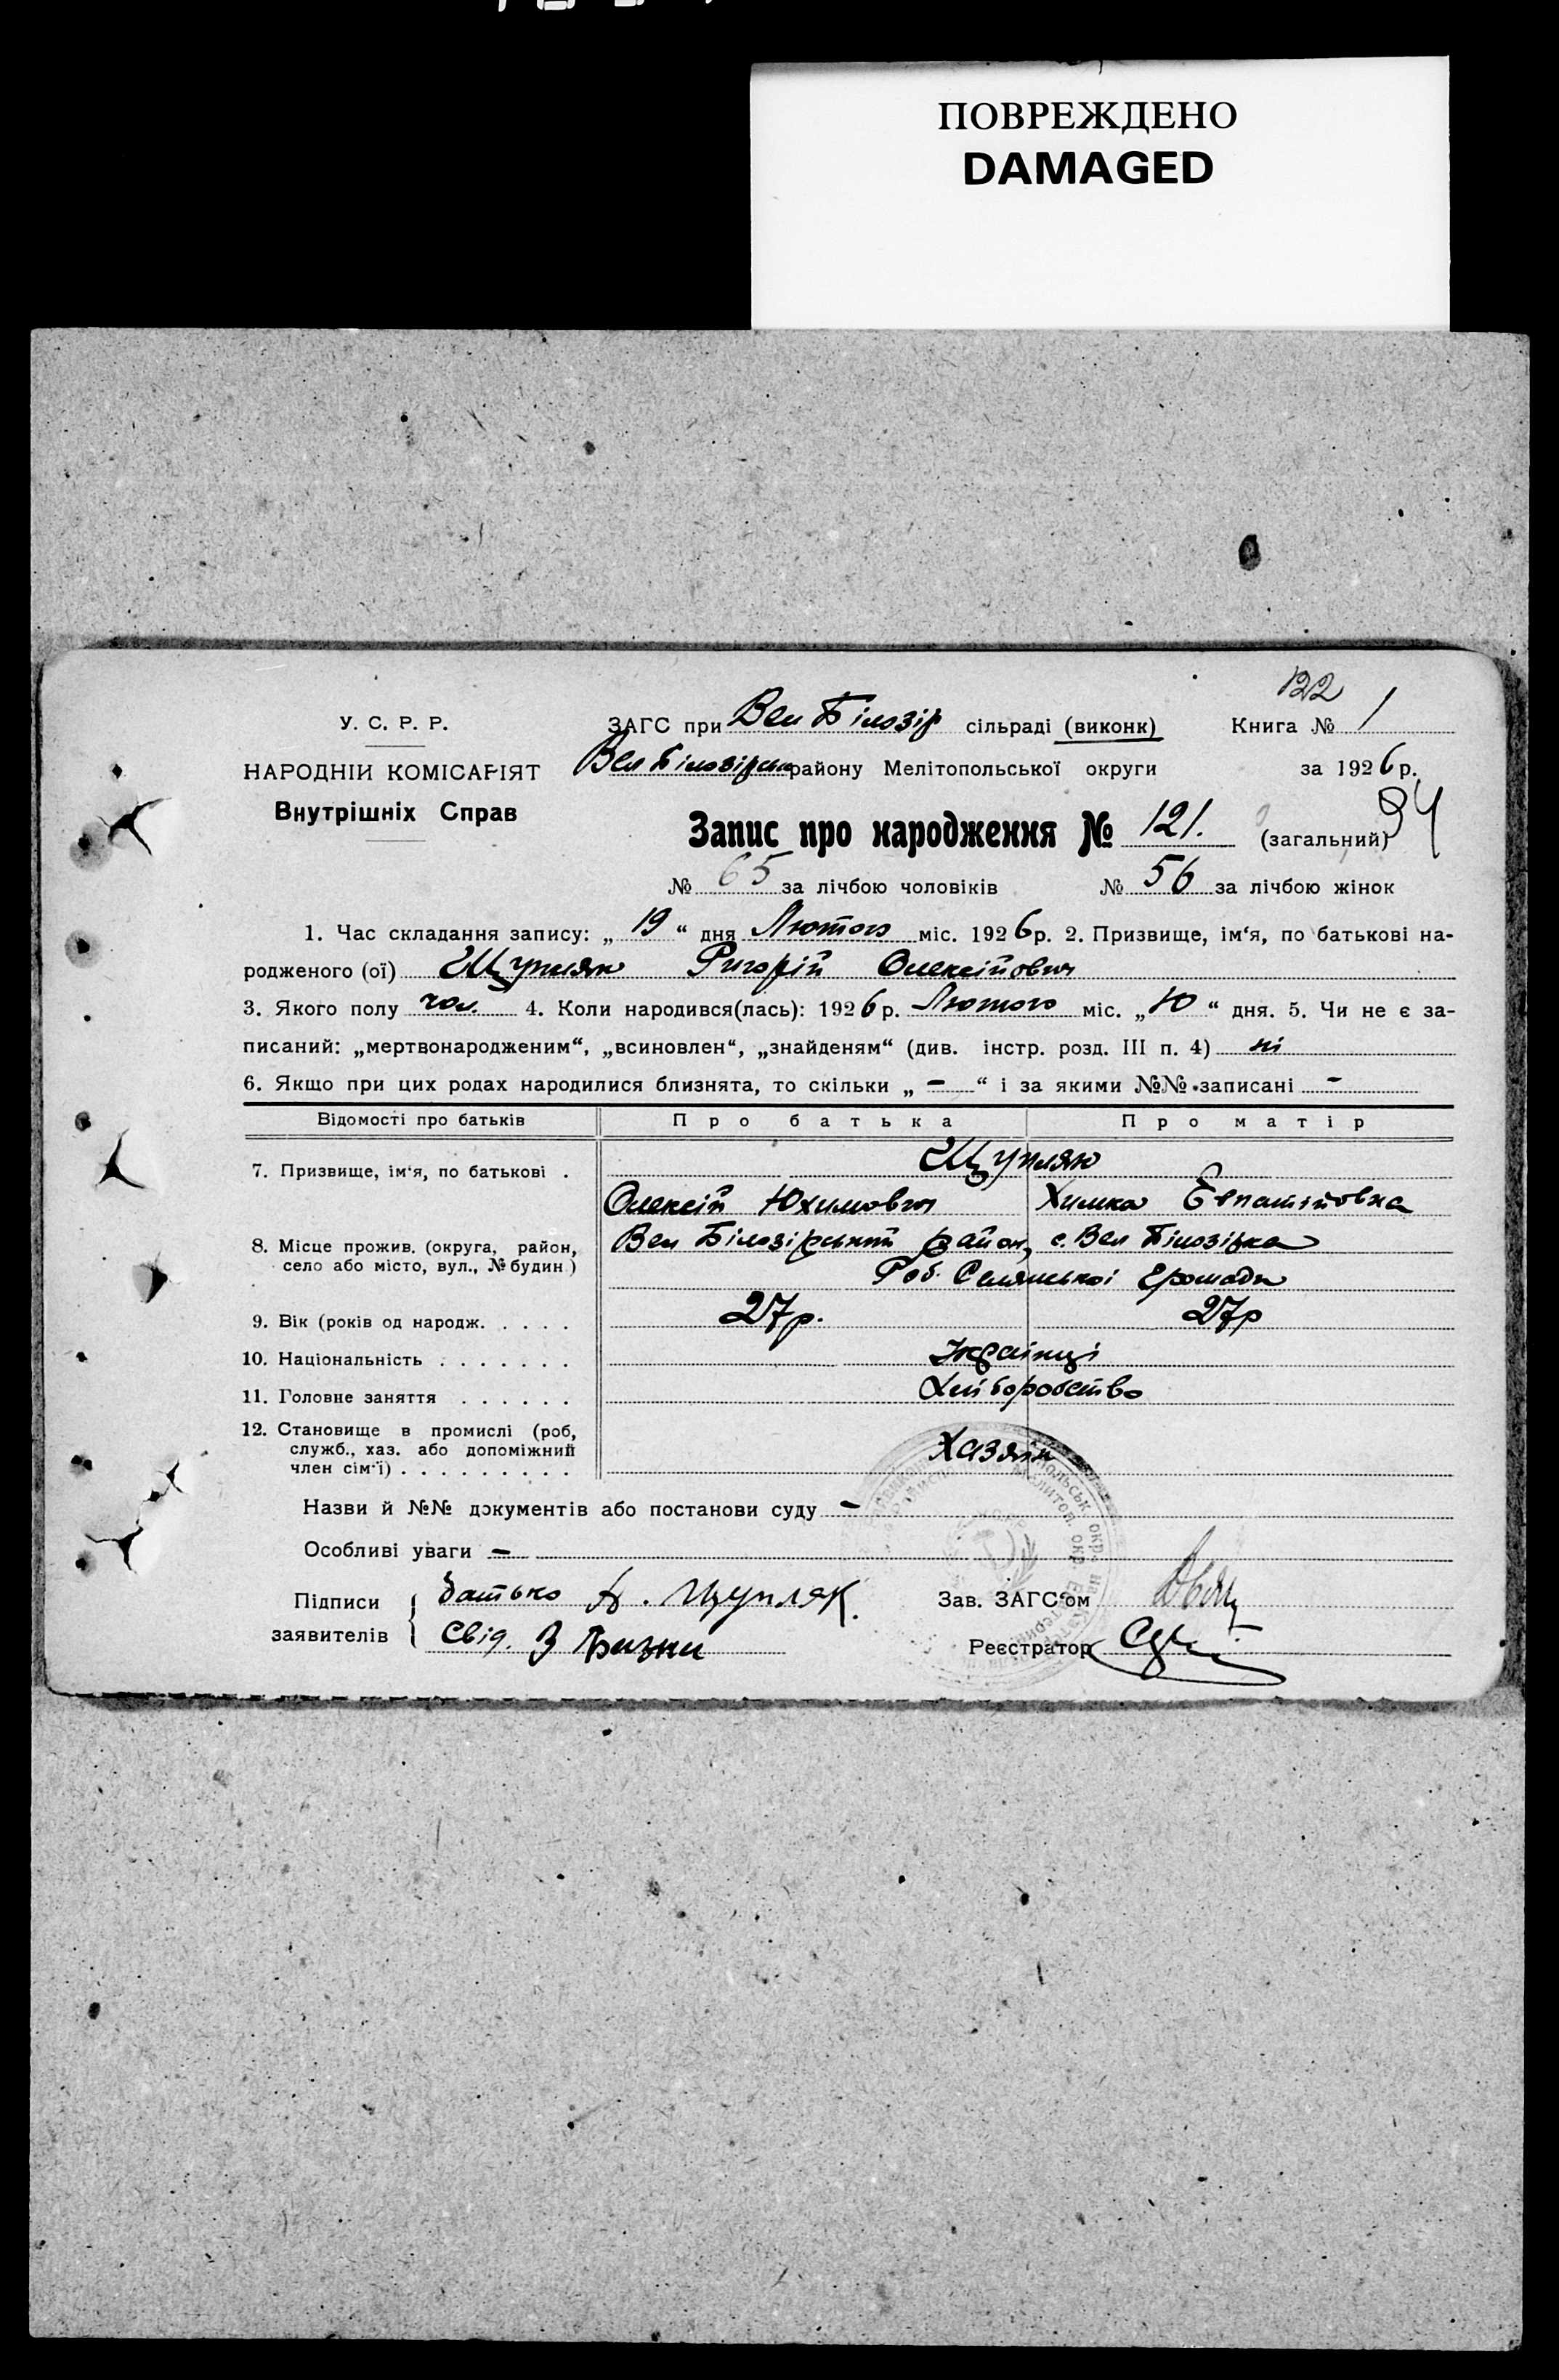 ПОВРЕЖДЕНО
DAMAGED
122
У. С. Р. Р. ЗАГС при Вел Білозір сільраді (виконк) Книга № 1
НАРОДНІЙ КОМІСАРІЯТ Вел Білозірськ району Мелітопольської округи за 1926 р.
Внутрішніх Справ
Запис про народження № 121. (загальний) 94
№ 65 за лічбою чоловіків № 56 за лічбою жінок
1. Час складання запису: „ 19 “ дня Лютого міс. 1926 р. 2. Призвище, ім‘я, по батькові на-
родженого (ої) Щупляк Григорій Олексійович
3. Якого полу чол. 4. Коли народився(лась): 1926 р. Лютого міс. „ 10 “ дня. 5. Чи не є за-
писаний: „мертвонародженим“, „всиновлен“, „знайденям“ (див. інстр. розд. III п. 4) ні
6. Якщо при цих родах народилися близнята, то скільки „ – “ і за якими №№ записані –
Відомості про батьків Про батька Про матір
7. Призвище, ім‘я, по батькові . Щупляк
Олексій Юхимович Химка
8. Місце прожив. (округа, район, Вел Білозірський район, с. Вел Білозірка
село або місто, вул., № будин.) Роб. Селянської Громади
9. Вік (років од народж. . . . . 27р. 27р
10. Національність . . . . . . . Українці
11. Головне заняття . . . . . . Хліборобство
12. Становище в промислі (роб,
служб., хаз. або допоміжний Хазяїн
член сім‘ї) . . . . . . . . .
Назви й №№ документів або постанови суду –
Особливі уваги –
Підписи батько А. Щупляк. Зав. ЗАГС‘ом
заявителів Свід. З Реєстратор